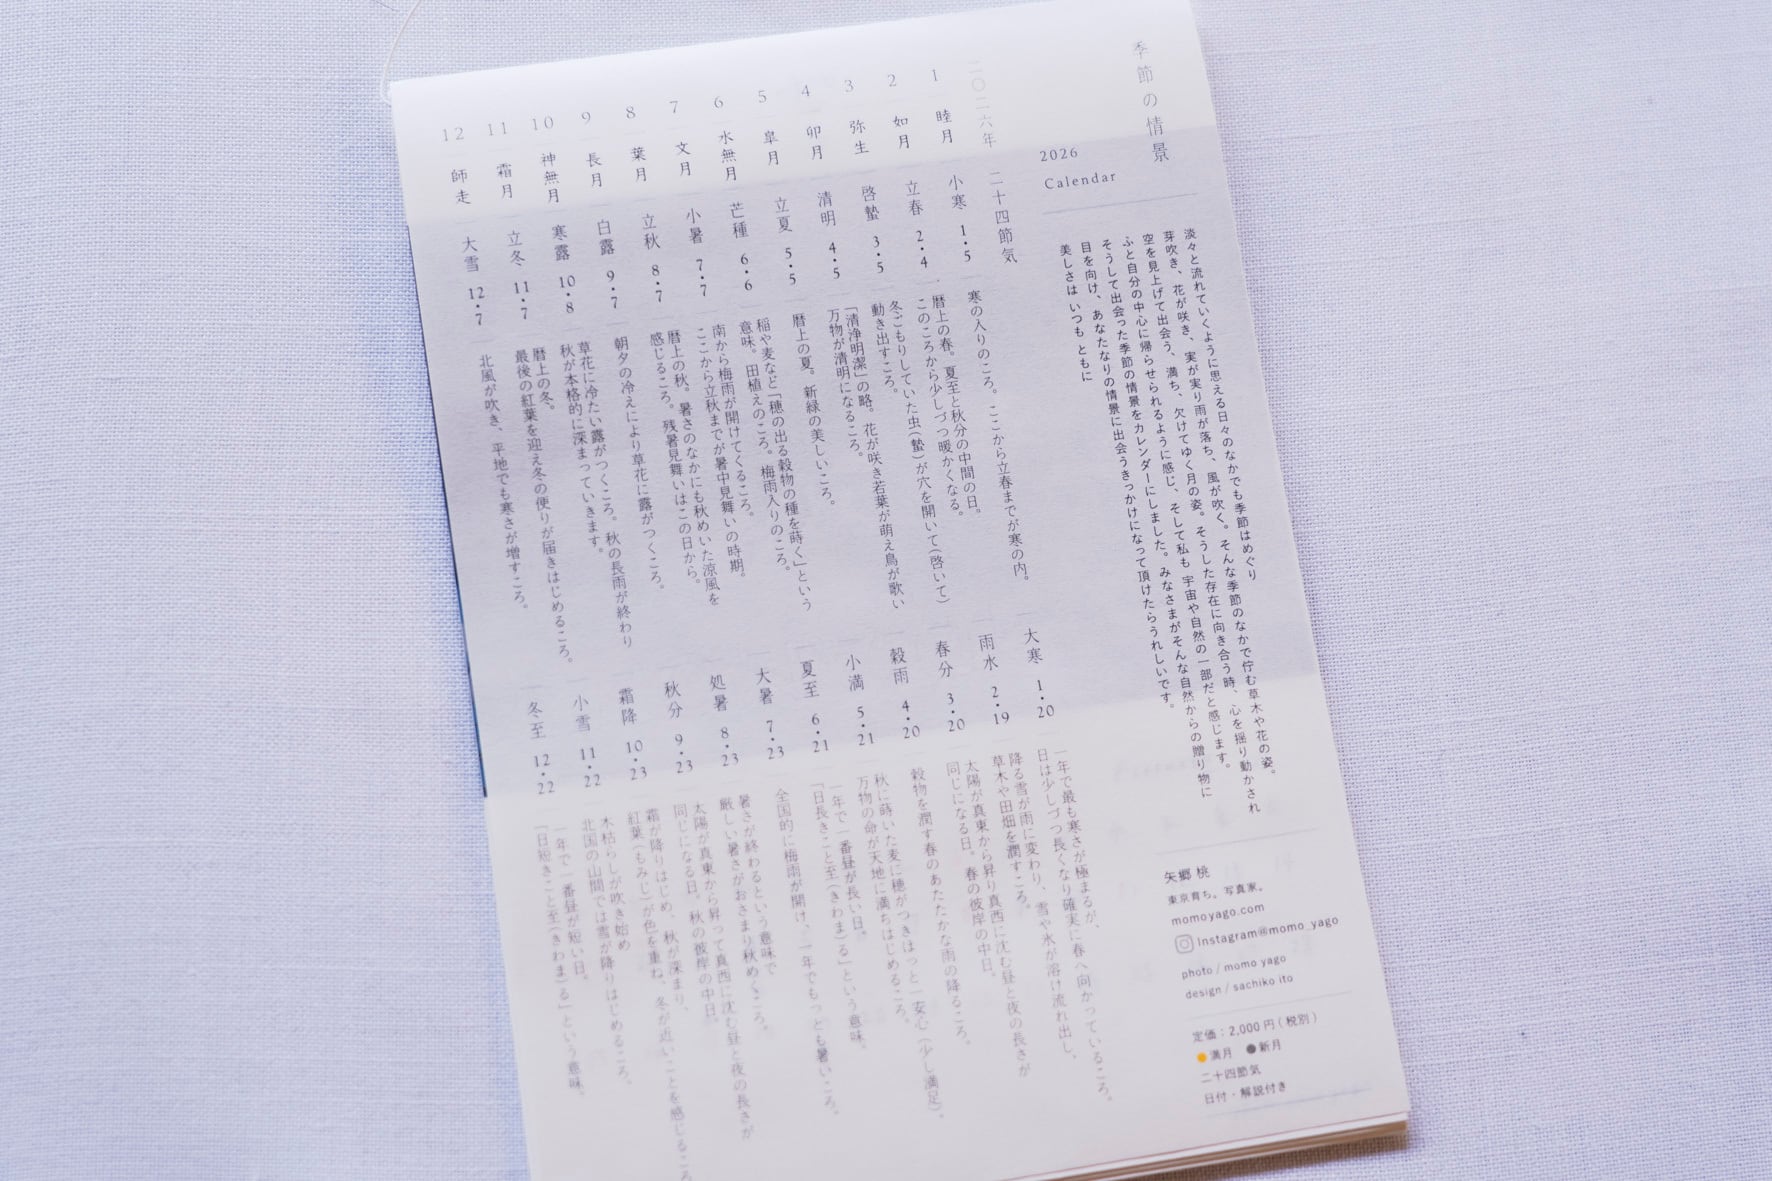 季節の情景
2026
Calendar
淡々と流れていくように思える日々のなかでも季節はめぐり
芽吹き、花が咲き、実が実り雨が落ち、風が吹く。そんな季節のなかで佇む草木や花の姿。
空を見上げて出会う、満ち、欠けてゆく月の姿。そうした存在に向き合う時、心を揺り動かされ
ふと自分の中心に帰らせられるように感じ、そして私も 宇宙や自然の一部だと感じます。
そうして出会った季節の情景をカレンダーにしました。みなさまがそんな自然からの贈り物に
目を向け、あなたなりの情景に出会うきっかけになって頂けたらうれしいです。
美しさは いつも ともに
矢郷 桃
東京育ち。写真家。
momoyago.com
Instagram@momo_yago
photo / momo yago
design / sachiko ito
定価：2,000円(税別)
●満月 ●新月
二十四節気
日付・解説付き
二〇二六年 二十四節気
1 睦月 小寒 1・5
寒の入りのころ。ここから立春までが寒の内。
大寒 1・20
一年で最も寒さが極まるが、
日は少しづつ長くなり確実に春へ向かっているころ。
2 如月 立春 2・4
暦上の春。夏至と秋分の中間の日。
このころから少しづつ暖かくなる。
雨水 2・19
降る雪が雨に変わり、雪や氷が溶け流れ出し、
草木や田畑を潤すころ。
3 弥生 啓蟄 3・5
冬ごもりしていた虫(蟄)が穴を開いて(啓いて)
動き出すころ。
春分 3・20
太陽が真東から昇り真西に沈む昼と夜の長さが
同じになる日。春の彼岸の中日。
4 卯月 清明 4・5
「清浄明潔」の略。花が咲き若葉が萌え鳥が歌い
万物が清明になるころ。
穀雨 4・20
穀物を潤す春のあたたかな雨の降るころ。
5 皐月 立夏 5・5
暦上の夏。新緑の美しいころ。
小満 5・21
秋に蒔いた麦に穂がつきほっと一安心(少し満足)。
万物の命が天地に満ちはじめるころ。
6 水無月 芒種 6・6
稲や麦など「穂の出る穀物の種を蒔く」という
意味。田植えのころ。梅雨入りのころ。
夏至 6・21
一年で一番昼が長い日。
「日長きこと至(きわま)る」という意味。
7 文月 小暑 7・7
南から梅雨が開けてくるころ。
ここから立秋までが暑中見舞いの時期。
大暑 7・23
全国的に梅雨が開け、一年でもっとも暑いころ。
8 葉月 立秋 8・7
暦上の秋。暑さのなかにも秋めいた涼風を
感じるころ。残暑見舞いはこの日から。
処暑 8・23
暑さが終わるという意味で
厳しい暑さがおさまり秋めくころ。
9 長月 白露 9・7
朝夕の冷えにより草花に露がつくころ。
秋分 9・23
太陽が真東から昇って真西に沈む昼と夜の長さが
同じになる日。秋の彼岸の中日。
10 神無月 寒露 10・8
草花に冷たい露がつくころ。秋の長雨が終わり
秋が本格的に深まっていきます。
霜降 10・23
霜が降りはじめ、秋が深まり、
紅葉(もみじ)が色を重ね、冬が近いことを感じるころ
11 霜月 立冬 11・7
暦上の冬。
最後の紅葉を迎え冬の便りが届きはじめるころ。
小雪 11・22
木枯らしが吹き始め
北国の山間では雪が降りはじめるころ。
12 師走 大雪 12・7
北風が吹き、平地でも寒さが増すころ。
冬至 12・22
一年で一番昼が短い日。
「日短きこと至(きわま)る」という意味。